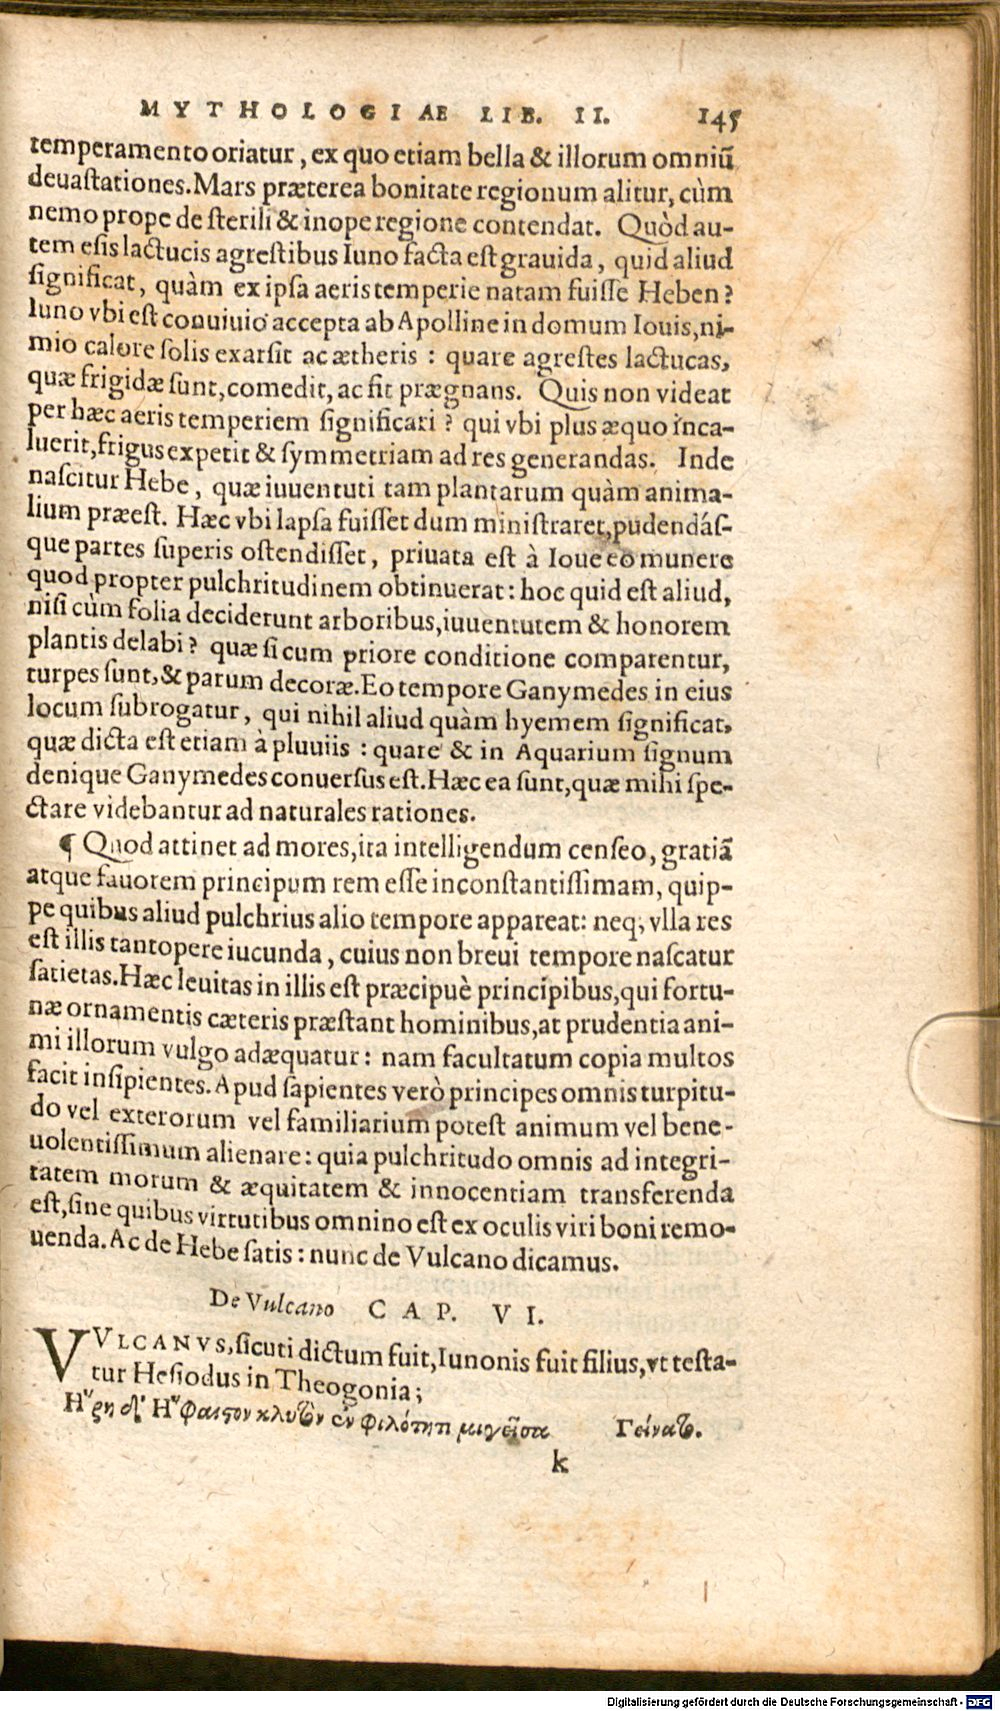 MYTHOLOGIAE LIB. II. 145
temperamento oriatur, ex quo etiam bella & illorum omniũ
deuastationes. Mars præterea bonitate regionum alitur, cùm
nemo prope de sterili & inope regione contendat. Quòd au-
tem esis lactucis agrestibus Iuno facta est grauida, quid aliud
significat, quàm ex ipsa aeris temperie natam fuisse Heben?
Iuno vbi est conuiuio accepta ab Apolline in domum Iouis, ni-
mio calore solis exarsit ac ætheris: quare agrestes lactucas,
quæ frigidæ sunt, comedit, ac fit prægnans. Quis non videat
per hæc aeris temperiem significari? qui vbi plus æquo inca-
luerit, frigus expetit & symmetriam ad res generandas. Inde
nascitur Hebe, quæ iuuentuti tam plantarum quàm anima-
lium præest. Hæc vbi lapsa fuisset dum ministraret, pudendás-
que partes superis ostendisset, priuata est à Ioue eo munere
quod propter pulchritudinem obtinuerat: hoc quid est aliud,
nisi cùm folia deciderunt arboribus, iuuentutem & honorem
plantis delabi? quæ si cum priore conditione comparentur,
turpes sunt, & parum decoræ. Eo tempore Ganymedes in eius
locum subrogatur, qui nihil aliud quàm hyemem significat,
quæ dicta est etiam à pluuiis: quare & in Aquarium signum
denique Ganymedes conuersus est. Hæc ea sunt, quæ mihi spe-
ctare videbantur ad naturales rationes.
¶ Quod attinet ad mores, ita intelligendum censeo, gratiã
atque fauorem principum rem esse inconstantissimam, quip-
pe quibus aliud pulchrius alio tempore appareat: neq; vlla res
est illis tantopere iucunda, cuius non breui tempore nascatur
satietas. Hæc leuitas in illis est præcipuè principibus, qui fortu-
næ ornamentis cæteris præstant hominibus, at prudentia ani-
mi illorum vulgo adæquatur: nam facultatum copia multos
facit insipientes. Apud sapientes verò principes omnis turpitu-
do vel exterorum vel familiarium potest animum vel bene-
uolentissimum alienare: quia pulchritudo omnis ad integri-
tatem morum & æquitatem & innocentiam transferenda
est, sine quibus virtutibus omnino est ex oculis viri boni remo-
uenda. Ac de Hebe satis: nunc de Vulcano dicamus.
De Vulcano CAP. VI.
VVLCANVS, sicuti dictum fuit, Iunonis fuit filius, vt testa-
tur Hesiodus in Theogonia;
Ἥρη δ' Ἥφαιστον κλυτὸν ἐν φιλότητι μιγεῖσα Γείνατο.
k
Digitalisierung gefördert durch die Deutsche Forschungsgemeinschaft - DFG